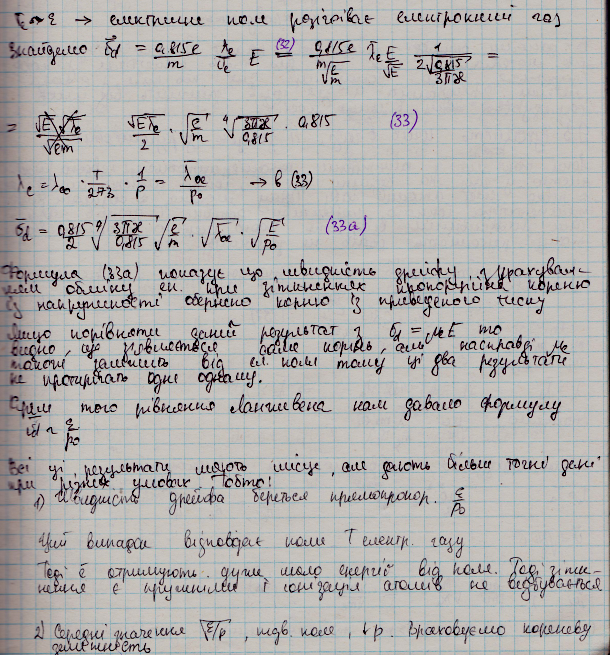 E ~ ε → електричне поле розігріває електронний газ
Знайдемо v̄d = 0,815e/m λe/v̄e E =(32) 0,815e/m√(E/m) λ̄e E/√E 1/(2√(0,815/3πæ)) =
= √(Eλe)/2 · √(e/m) ⁴√(3πæ/0,815) · 0,815 (33)
λe = λ∞ · T/273 · 1/p = λ̄∞/p₀ → в (33)
v̄d = 0,815/2 ⁴√(3πæ/0,815) √(e/m) · √λ∞ · √(E/p₀) (33a)
Формула (33a) показує що швидкість дрейфу з урахуван-
ням обміну ен. при зіткненнях пропорційна кореню
із напруженості обернено корню із приведеного тиску
Якщо порівняти даний результат з v̄d = μeE то
видно, що з'являється саме корінь, але насправді μe
також залежить від ел. поля тому ці два результати
не протирічать одне одному.
Крім того рівняння Ланжевена нам давало формулу
v̄d ~ ε/p₀
Всі ці результати мають місце, але дають більш точні дані
при різних умовах. Тобто:
1) Швидкість дрейфа береться прямопропор. ε/p₀
Цей випадок відповідає коли T електр. газу
Тоді ē отримують дуже мало енергії від поля. Тоді зітк-
нення є пружніми і іонізація атомів не відбувається
2) Середні значення √(ε/p), поле, ↓p. Враховуємо кореневу
залежність